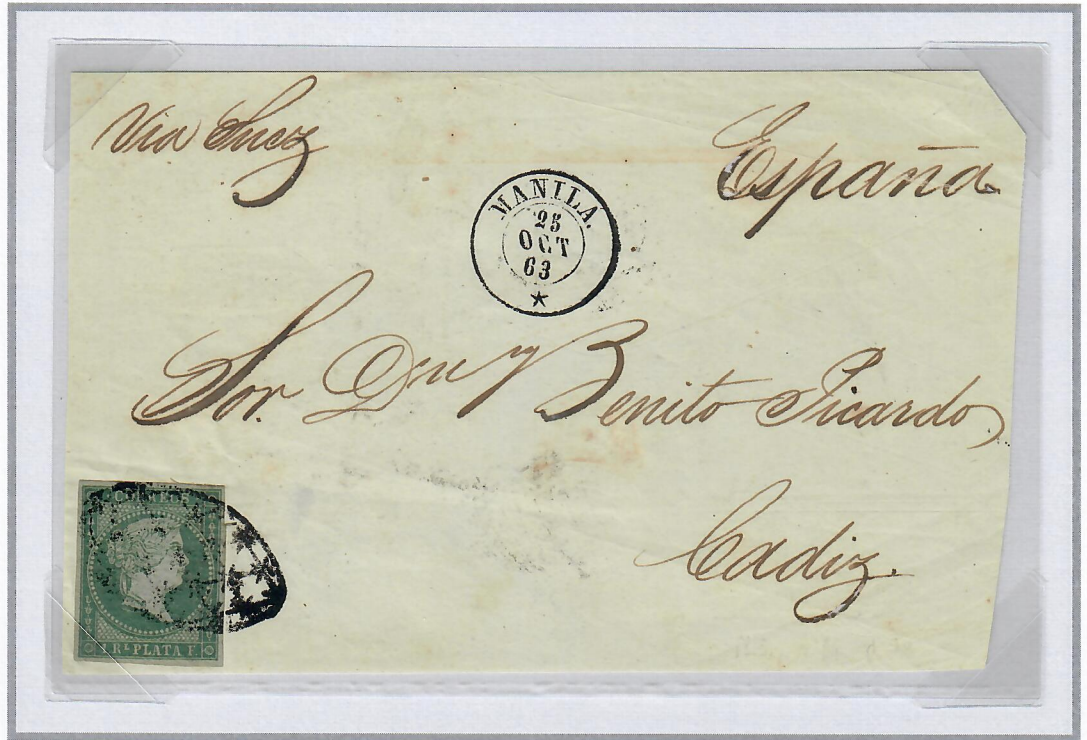 Via Suez
España
MANILA.
25
OCT
63
Sor. Dn Benito Picardo
Cadiz.
CORREOS
1 Rl. PLATA F.